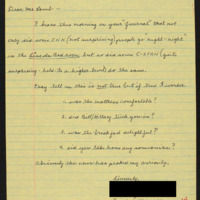 Dear Mr Lamb -
I hear this morning on your "Journal" that not
only did some CNN (not surprising) people go "night-night"
in the Lincoln Bedroom but so did some C-SPAN (quite
surprising - held to a higher level) do the same.
They tell me this is not true but if true I wonder
1. was the mattress comfortable?
2. did Bill/Hillary tuck you in?
3. was the breakfast delightful?
4. did you take home any souvenirs?
Obviously the news has peaked my curiosity.
Sincerely